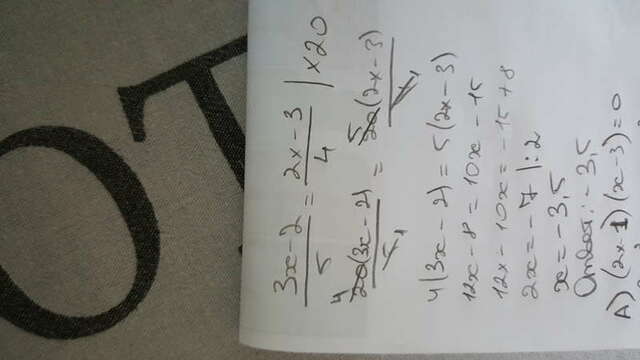 OT
3x-2/5 = 2x-3/4 | x20
4 20(3x-2)/5 1 = 5 20(2x-3)/4 1
4(3x-2) = 5(2x-3)
12x-8 = 10x-15
12x-10x = -15+8
2x = -7 |:2
x = -3,5
Ответ: -3,5
A) (2x-1)(x-3)=0